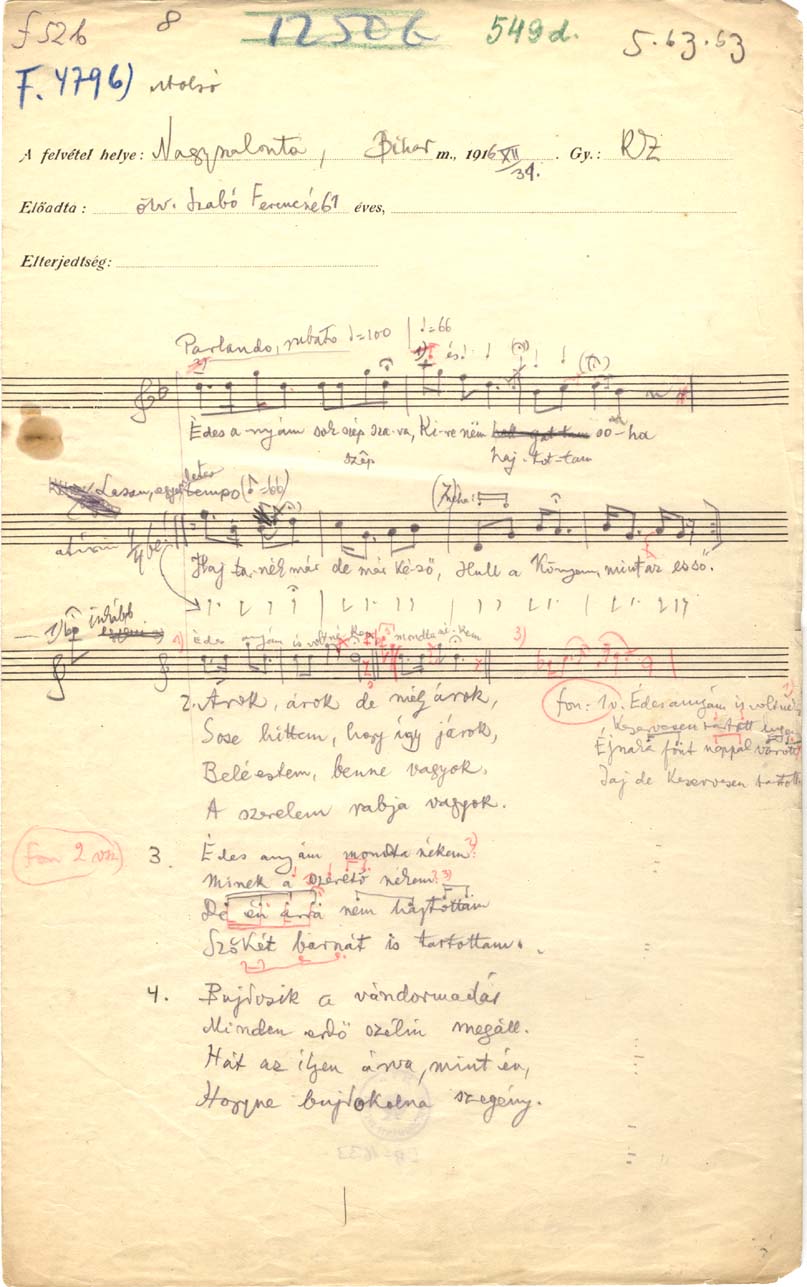 f52b 8 1250b 549d. 5.63.53
F. 479b)
A felvétel helye: Nagyszalonta, Bihar m., 1916 XII/31. Gy.: KZ
Előadta: özv. Szabó Ferencné 61 éves,
Elterjedtség:
Parlando, rubato ♩=100 ♩=66
és
Édes a nyám sok szép sza-va, Ki-re nëm hall-gat-tam so-ha
szép haj-tot-tam
Lassu, tempo (♩=66) néha:
Haj ta-nék már de már ké-ső, Hull a könyem, mint az eső.
1) inkább
1) Édes anyám is volt né-kem mondta né-kem 3)
2. Árok, árok de mély árok,
Sose hittem, hogy így járok,
Beléestem, benne vagyok,
A szerelem rabja vagyok.
fon: 1v. Édesanyám is volt
Keservesen tartott
Éjnalá fönt nappal várott
Jaj de keservesen tartott
fon 2 vsz
3. Édes anyám mondta nékem 2)
Minek a szerető nékem? 3)
De én arra nëm hajtottam
Szőkét barnát is tartottam.
4. Bujdosik a vándormadár
Minden erdő szélin megáll.
Hát az ilyen árva, mint én,
Hogyne bujdokolna szegény.